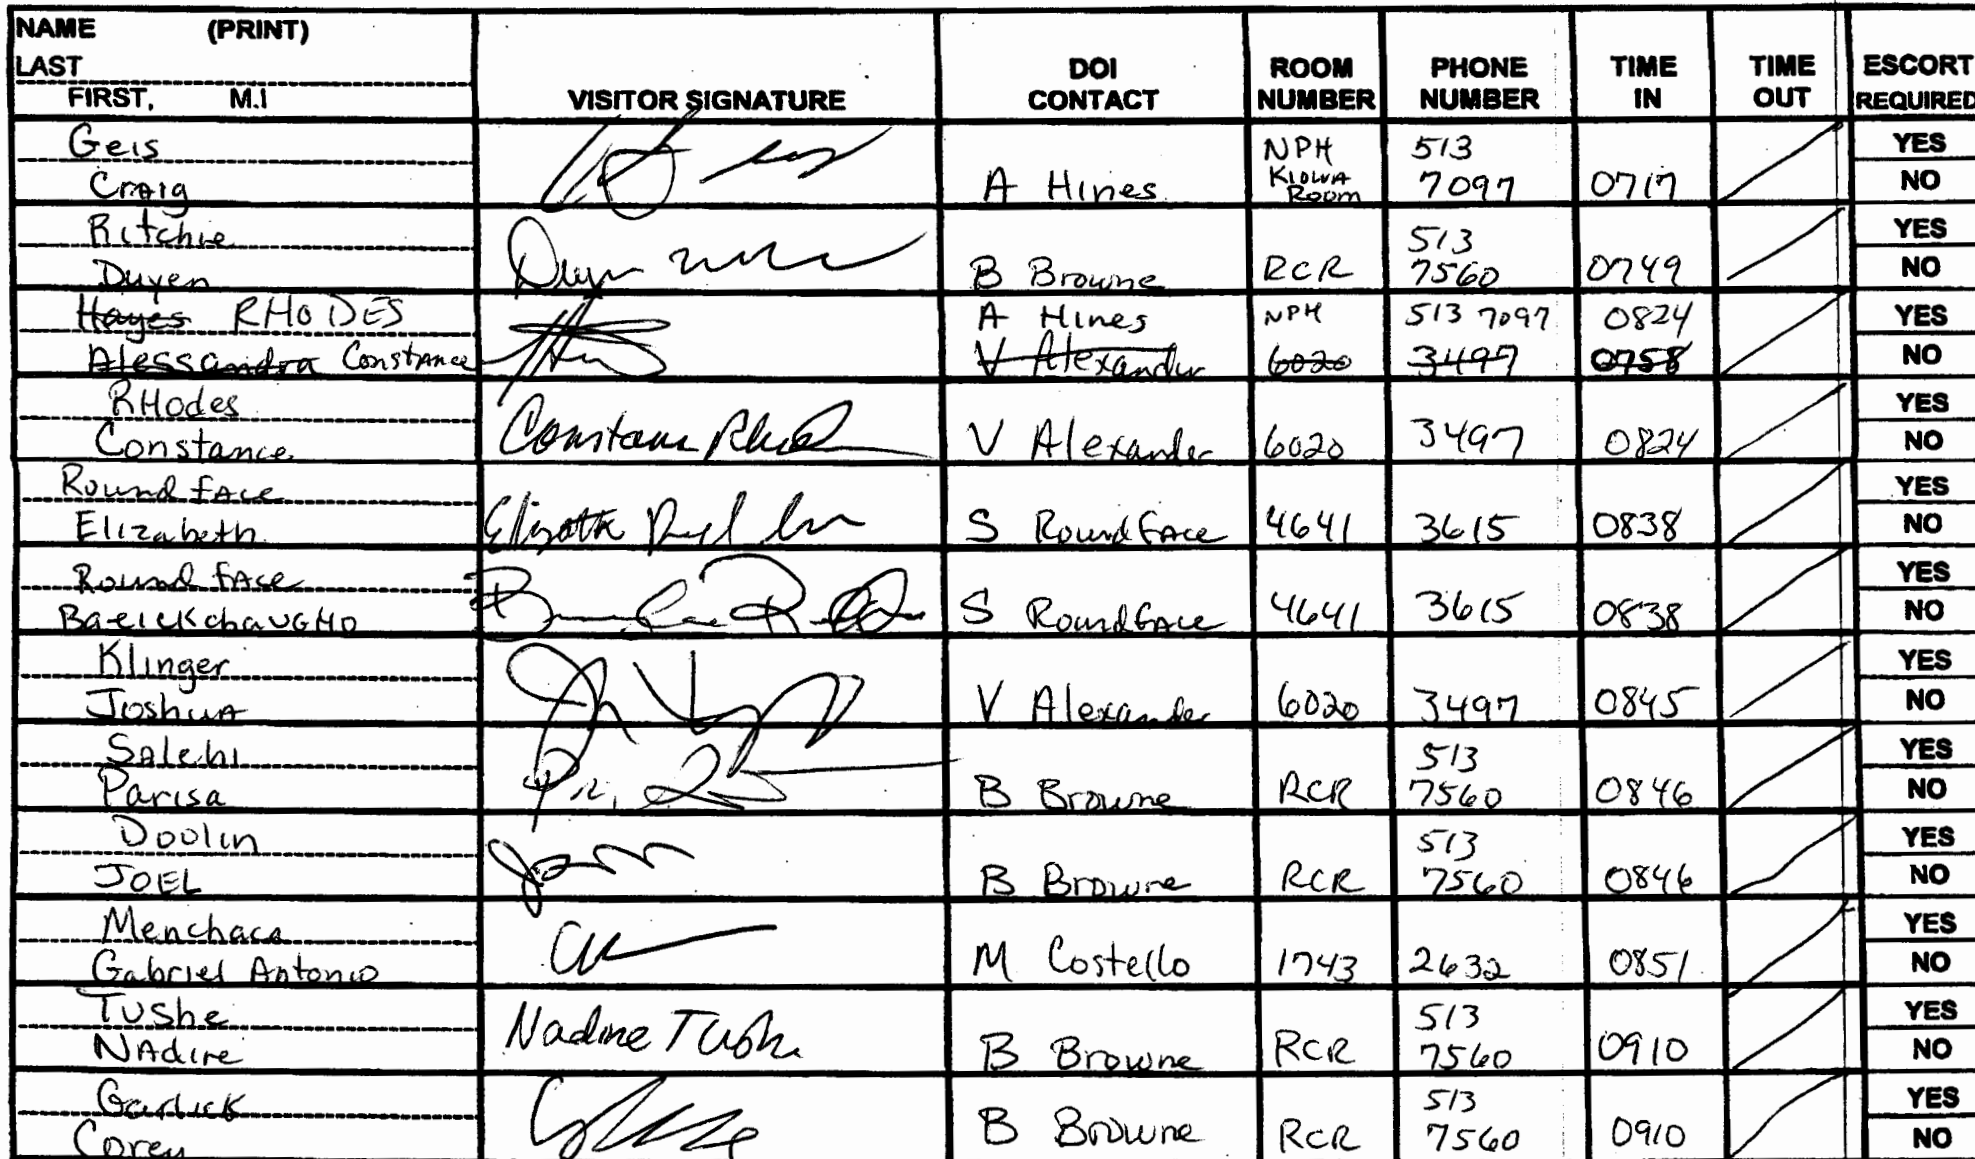 NAME (PRINT)
LAST
FIRST, M.I
VISITOR SIGNATURE
DOI
CONTACT
ROOM
NUMBER
PHONE
NUMBER
TIME
IN
TIME
OUT
ESCORT
REQUIRED
Geis
Craig
A Hines
NPH
Kiowa
Room
513
7097
0717
YES
NO
Ritchie
Duyen
Duyen
B Browne
RCR
513
7560
0749
YES
NO
Hayes RHODES
Alessandra Constance
A Hines
V Alexander
NPH
6020
513 7097
3497
0824
0758
YES
NO
RHodes
Constance
Constance Rhodes
V Alexander
6020
3497
0824
YES
NO
Round face
Elizabeth
Elizabeth
S Roundface
4641
3615
0838
YES
NO
Round face
BaeickchaugHo
S Roundface
4641
3615
0838
YES
NO
Klinger
Joshua
V Alexander
6020
3497
0845
YES
NO
Salehi
Parisa
B Browne
RCR
513
7560
0846
YES
NO
Doolin
JOEL
B Browne
RCR
513
7560
0846
YES
NO
Menchaca
Gabriel Antonio
M Costello
1743
2632
0851
YES
NO
Tushe
NAdine
Nadine Tushe
B Browne
RCR
513
7560
0910
YES
NO
Garlick
Corey
B Browne
RCR
513
7560
0910
YES
NO